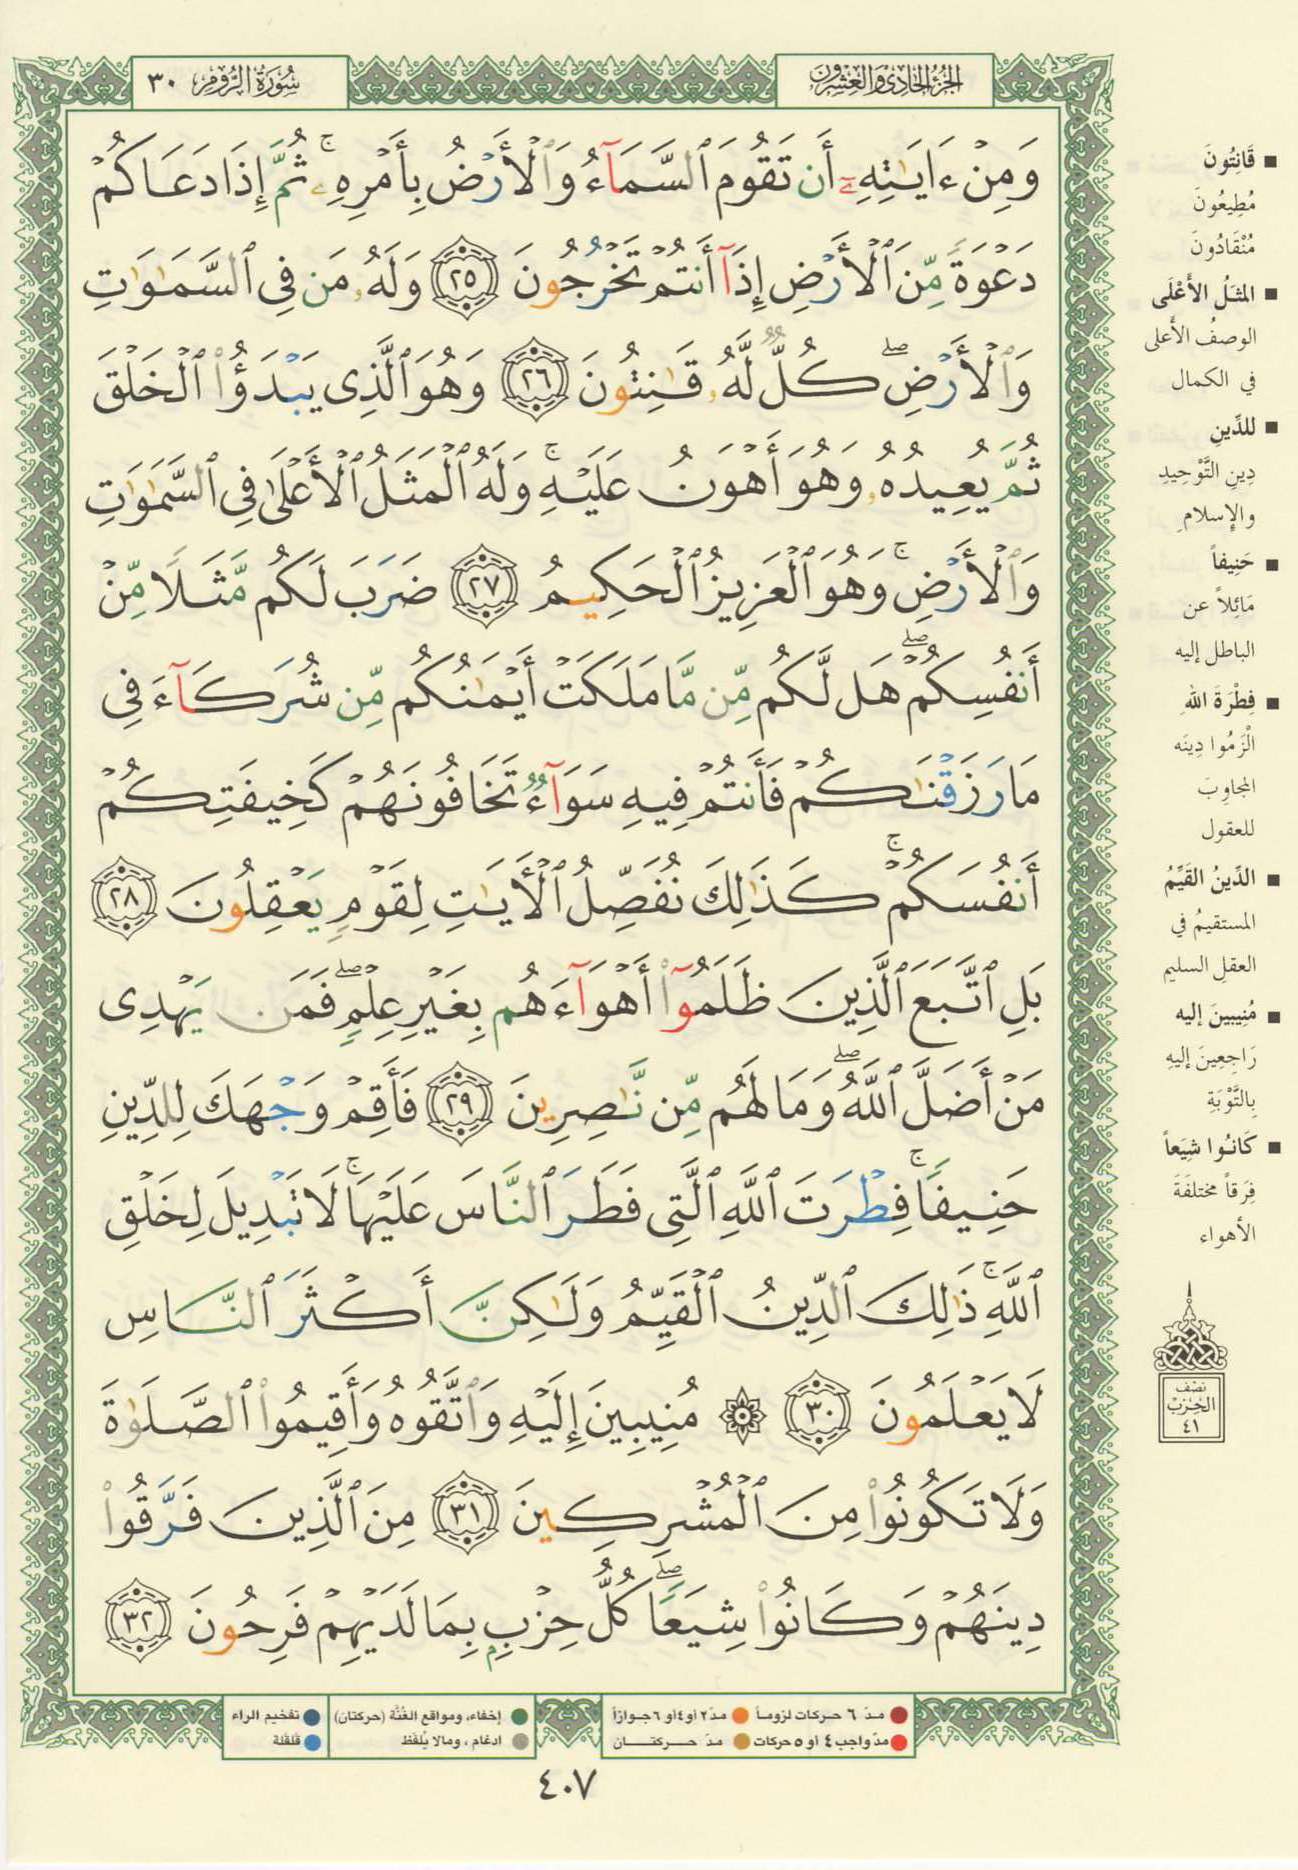 سُورَةُ الرُّومِ ٣٠
الجُزْءُ الحَادِي وَالعِشْرُونَ
وَمِنْ ءَايَـٰتِهِۦٓ أَن تَقُومَ ٱلسَّمَآءُ وَٱلْأَرْضُ بِأَمْرِهِۦ ۚ ثُمَّ إِذَا دَعَاكُمْ
دَعْوَةً مِّنَ ٱلْأَرْضِ إِذَآ أَنتُمْ تَخْرُجُونَ ٢٥ وَلَهُۥ مَن فِى ٱلسَّمَـٰوَٰتِ
وَٱلْأَرْضِ ۖ كُلٌّ لَّهُۥ قَـٰنِتُونَ ٢٦ وَهُوَ ٱلَّذِى يَبْدَؤُا۟ ٱلْخَلْقَ
ثُمَّ يُعِيدُهُۥ وَهُوَ أَهْوَنُ عَلَيْهِ ۚ وَلَهُ ٱلْمَثَلُ ٱلْأَعْلَىٰ فِى ٱلسَّمَـٰوَٰتِ
وَٱلْأَرْضِ ۚ وَهُوَ ٱلْعَزِيزُ ٱلْحَكِيمُ ٢٧ ضَرَبَ لَكُم مَّثَلًا مِّنْ
أَنفُسِكُمْ ۖ هَل لَّكُم مِّن مَّا مَلَكَتْ أَيْمَـٰنُكُم مِّن شُرَكَآءَ فِى
مَا رَزَقْنَـٰكُمْ فَأَنتُمْ فِيهِ سَوَآءٌ تَخَافُونَهُمْ كَخِيفَتِكُمْ
أَنفُسَكُمْ ۚ كَذَٰلِكَ نُفَصِّلُ ٱلْـَٔايَـٰتِ لِقَوْمٍ يَعْقِلُونَ ٢٨
بَلِ ٱتَّبَعَ ٱلَّذِينَ ظَلَمُوٓا۟ أَهْوَآءَهُم بِغَيْرِ عِلْمٍ ۖ فَمَن يَهْدِى
مَنْ أَضَلَّ ٱللَّهُ ۖ وَمَا لَهُم مِّن نَّـٰصِرِينَ ٢٩ فَأَقِمْ وَجْهَكَ لِلدِّينِ
حَنِيفًا ۚ فِطْرَتَ ٱللَّهِ ٱلَّتِى فَطَرَ ٱلنَّاسَ عَلَيْهَا ۚ لَا تَبْدِيلَ لِخَلْقِ
ٱللَّهِ ۚ ذَٰلِكَ ٱلدِّينُ ٱلْقَيِّمُ وَلَـٰكِنَّ أَكْثَرَ ٱلنَّاسِ
لَا يَعْلَمُونَ ٣٠ ۞ مُنِيبِينَ إِلَيْهِ وَٱتَّقُوهُ وَأَقِيمُوا۟ ٱلصَّلَوٰةَ
وَلَا تَكُونُوا۟ مِنَ ٱلْمُشْرِكِينَ ٣١ مِنَ ٱلَّذِينَ فَرَّقُوا۟
دِينَهُمْ وَكَانُوا۟ شِيَعًا ۖ كُلُّ حِزْبٍۭ بِمَا لَدَيْهِمْ فَرِحُونَ ٣٢
■ قَانِتُونَ
مُطِيعُونَ
مُنْقَادُونَ
■ المثَلُ الأَعْلَى
الوصفُ الأَعلى
في الكمال
■ للدِّينِ
دِينِ التَّوْحِيدِ
والإسلامِ
■ حَنِيفاً
مَائِلاً عن
الباطل إليه
■ فِطْرَةَ اللهِ
الْزَمُوا دِينَه
المجاوِبَ
للعقول
■ الدِّينُ القَيِّمُ
المستقيمُ في
العقلِ السليم
■ مُنِيبينَ إليه
رَاجِعِينَ إليهِ
بِالتَّوْبَةِ
■ كَانُوا شِيَعاً
فِرَقاً مختلفَةَ
الأهواء
نصْف
الحِزبْ
٤١
مدّ ٦ حركات لزوماً مدّ٢ أو٤أو ٦جوازاً
مدّ واجب ٤ أو ٥ حركات مدّ حركتان
إخفاء، ومواقع الغُنَّة (حركتان) تفخيم الراء
ادغام ، ومالا يُلفَظ قلقلة
٤٠٧